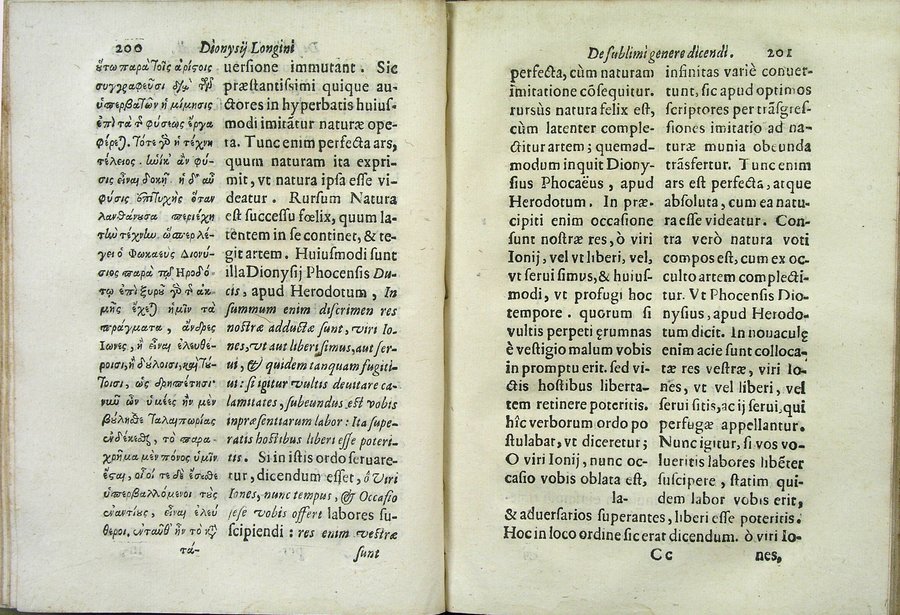 200 Dionysij Longini
οὕτω παρὰ τοῖς ἀρίστοις
συγγραφεῦσι διὰ τῶν
ὑπερβατῶν ἡ μίμησις
ἐπὶ τὰ τῆς φύσεως ἔργα
φέρεται. τότε γὰρ ἡ τέχνη
τέλειος, ἡνίκ' ἂν φύ-
σις εἶναι δοκῇ, ἡ δ' αὖ
φύσις ἐπιτυχὴς ὅταν
λανθάνουσα περιέχῃ
τὴν τέχνην. ὥσπερ λέ-
γει ὁ Φωκαεὺς Διονύ-
σιος παρὰ τῷ Ἡροδό-
τῳ ἐπὶ ξυροῦ γὰρ τῆς ἀκ-
μῆς ἔχεται ἡμῖν τὰ
πράγματα, ἄνδρες
Ἴωνες, ἢ εἶναι ἐλευθέ-
ροισι, ἢ δούλοισι, καὶ τού-
τοισι, ὡς δρηπέτησι
νῦν ὦν ὑμέες ἢν μὲν
βούλησθε ταλαιπωρίας
ἐνδέκεσθαι, τὸ παρα-
χρῆμα μὲν πόνος ὑμῖν
ἔσται, οἷοί τε δὲ ἔσεσθε
ὑπερβαλλόμενοι τοὺς
ἐναντίους, εἶναι ἐλεύ
θεροι. ἐνταῦθ' ἦν τὸ κατὰ
τά-
uersione immutant. Sic
præstantissimi quique au-
ctores in hyperbatis huius-
modi imitãtur naturæ ope-
ra. Tunc enim perfecta ars,
quum naturam ita expri-
mit, vt natura ipsa esse vi-
deatur. Rursum Natura
est successu fœlix, quum la-
tentem in se continet, & te-
git artem. Huiusmodi sunt
illa Dionysij Phocensis Du-
cis, apud Herodotum, In
summum enim discrimen res
nostræ adductæ sunt, viri Io-
nes, vt aut liberi simus, aut ser-
ui, & quidem tanquam fugiti-
ui: si igitur vultis deuitare ca-
lamitates, subeundus est vobis
inpræsentiarum labor: Ita supe-
ratis hostibus liberi esse poteri-
tis. Si in istis ordo seruare-
tur, dicendum esset, ô Viri
Iones, nunc tempus, & Occasio
sese vobis offert labores su-
scipiendi: res enim vestræ
sunt
De sublimi genere dicendi. 201
perfecta, cùm naturam
imitatione cõsequitur.
rursùs natura felix est,
cùm latenter comple-
ctitur artem; quemad-
modum inquit Diony-
sius Phocaëus, apud
Herodotum. In præ-
cipiti enim occasione
sunt nostræ res, ò viri
Ionij, vel vt liberi, vel,
vt serui simus, & huius-
modi, vt profugi hoc
tempore. quorum si
vultis perpeti ęrumnas
è vestigio malum vobis
in promptu erit. sed vi-
ctis hostibus liberta-
tem retinere poteritis.
hîc verborum ordo po
stulabat, vt diceretur;
O viri Ionij, nunc oc-
casio vobis oblata est,
la-
infinitas variè conuer-
tunt, sic apud optimos
scriptores per trãsgres-
siones imitatio ad na-
turæ munia obeunda
trãsfertur. Tunc enim
ars est perfecta, atque
absoluta, cum ea natu-
ra esse videatur. Con-
tra verò natura voti
compos est, cum ex oc-
culto artem complecti-
tur. Vt Phocensis Dio-
nysius, apud Herodo-
tum dicit. In nouaculę
enim acie sunt colloca-
tæ res vestræ, viri Io-
nes, vt vel liberi, vel
serui sitis, ac ij serui, qui
perfugæ appellantur.
Nunc igitur, si vos vo-
lueritis labores libẽter
suscipere, statim qui-
dem labor vobis erit,
& aduersarios superantes, liberi esse poteritis.
Hoc in loco ordine sic erat dicendum. ò viri Io-
Cc nes,